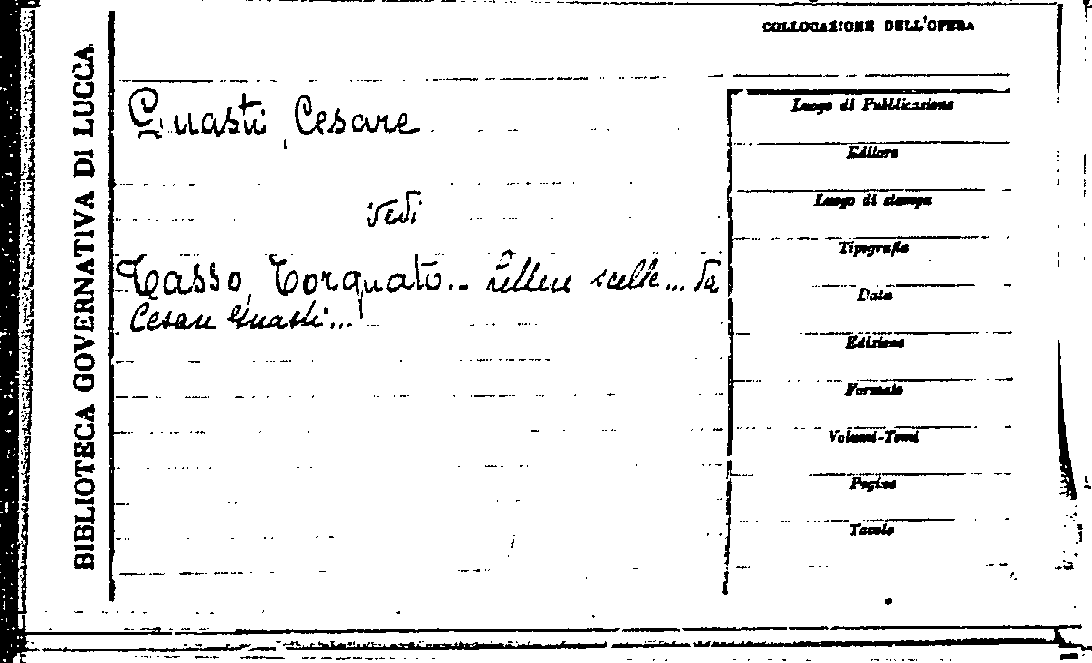 COLLOCAZIONE DELL'OPERA
BIBLIOTECA GOVERNATIVA DI LUCCA
Guasti, Cesare
vedi
Tasso, Torquato.. Lettere scelte... da
Cesare Guasti...
Luogo di Pubblicazione
Editore
Luogo di stampa
Tipografia
Data
Edizione
Formato
Volumi-Tomi
Pagine
Tavole